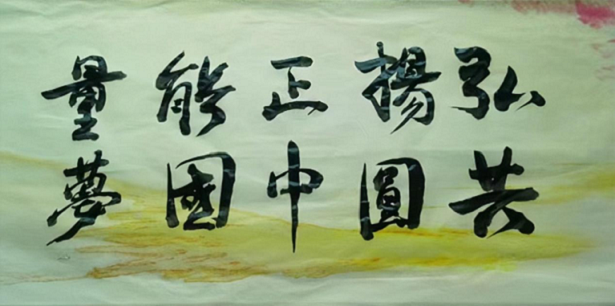 弘揚正能量
共圓中國夢